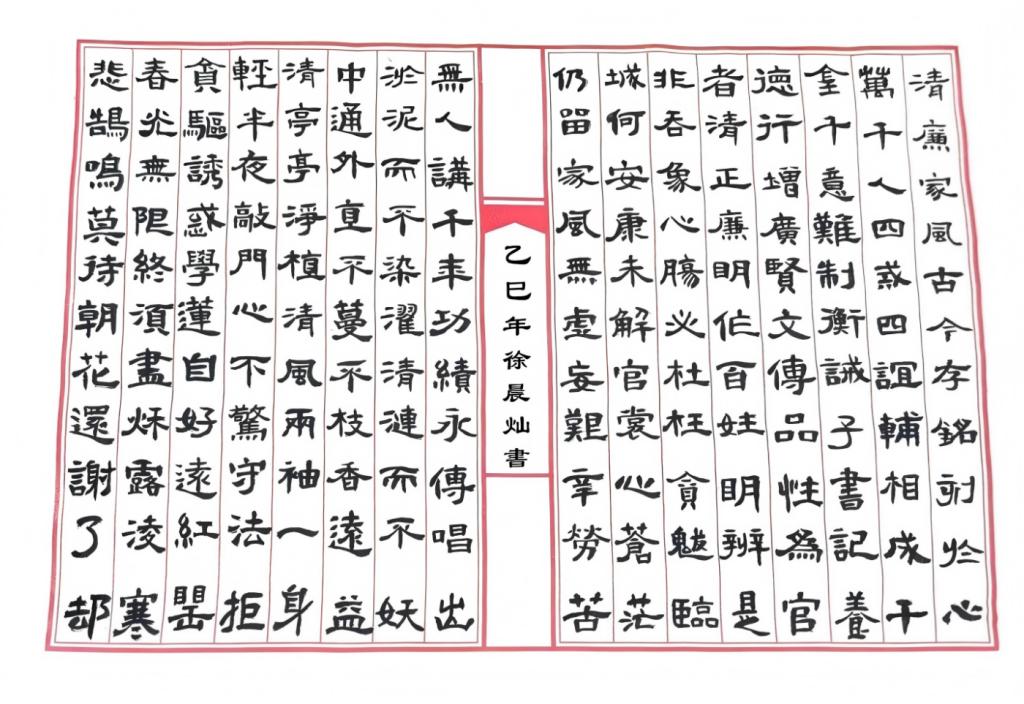 清廉家風古今存銘刻於心
萬千人四惑四誼輔相成千
金千意難制衡誡子書記養
德行增廣賢文傳品性爲官
者清正廉明作百姓明辨是
非吞象心腸必杜枉貪魃臨
城何安康未解官裳心蒼茫
仍留家風無虛妄艱辛勞苦
乙巳年徐晨灿書
無人講千年功績永傳唱出
淤泥而不染濯清漣而不妖
中通外直不蔓不枝香遠益
清亭亭淨植清風兩袖一身
輕半夜敲門心不驚守法拒
貪驅誘惑學蓮自好遠紅罌
春光無限終須盡秌露淩寒
悲鵠鳴莫待朝花還謝了却